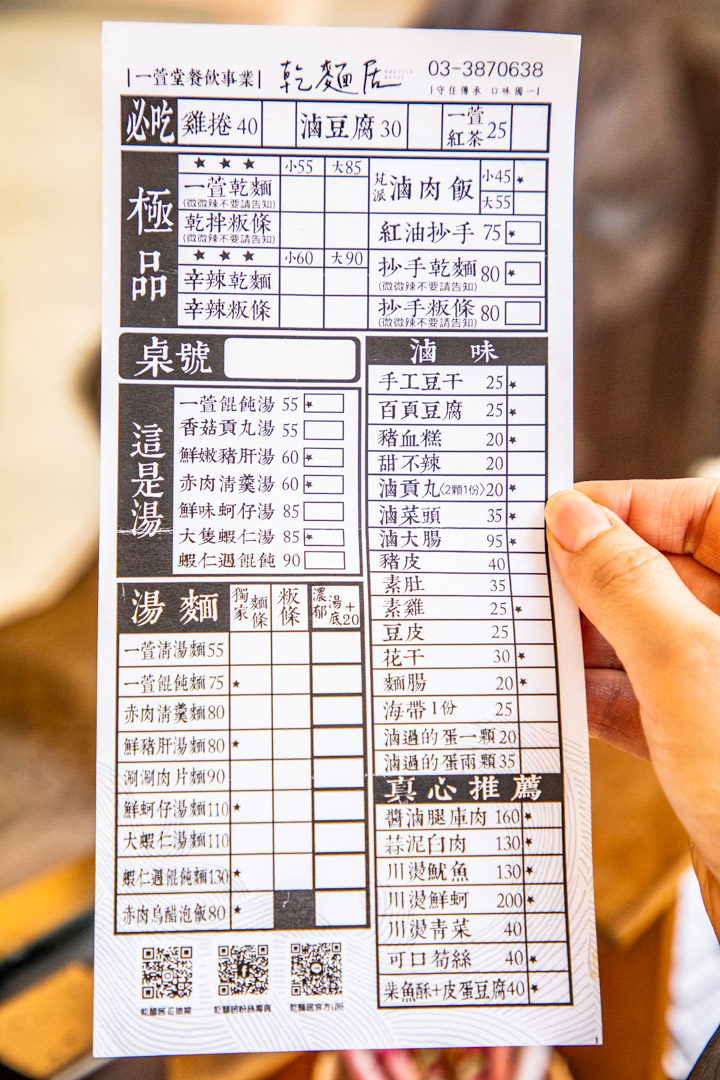 |一萱堂餐飲事業| 乾麵居 03-3870638
|守住傳承 口味獨一|
必吃 雞捲40 滷豆腐30 一萱紅茶25
極品
★ ★ ★ 小55 大85
一萱乾麵
(微微辣不要請告知)
乾拌粄條
(微微辣不要請告知)
★ ★ ★ 小60 大90
辛辣乾麵
辛辣粄條
梵派 滷肉飯 小45 ★
大55
紅油抄手 75 ★
抄手乾麵 80 ★
(微微辣不要請告知)
抄手粄條 80
(微微辣不要請告知)
桌號
這是湯
一萱餛飩湯 55 ★
香菇貢丸湯 55
鮮嫩豬肝湯 60 ★
赤肉清羹湯 60 ★
鮮味蚵仔湯 85
大隻蝦仁湯 85 ★
蝦仁遇餛飩 90
湯麵 獨家麵條 粄條 濃郁湯底+20
一萱清湯麵55
一萱餛飩麵75 ★
赤肉清羹麵80
鮮豬肝湯麵80 ★
涮涮肉片麵90
鮮蚵仔湯麵110 ★
大蝦仁湯麵110
蝦仁遇餛飩麵130 ★
赤肉烏醋泡飯80 ★
滷味
手工豆干 25 ★
百頁豆腐 25 ★
豬血糕 20 ★
甜不辣 20
滷貢丸〈2顆1份〉20 ★
滷菜頭 35 ★
滷大腸 95 ★
豬皮 40
素肚 35
素雞 25 ★
豆皮 25
花干 30 ★
麵腸 20 ★
海帶1份 25
滷過的蛋一顆20
滷過的蛋兩顆35
真心推薦
醬滷腿庫肉 160 ★
蒜泥白肉 130 ★
川燙魷魚 130 ★
川燙鮮蚵 200 ★
川燙青菜 40
可口筍絲 40 ★
柴魚酥+皮蛋豆腐40 ★
乾麵居粉絲專頁